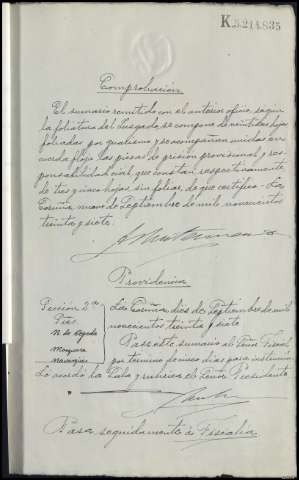 K.3.214.835
Comprobación
El sumario remitido con el anterior oficio, según
la foliatura del Juzgado, se compone de veintidos hojas
foliadas por guarismo y se acompañan unidas en
cuerda floja las piezas de prisión provisional y res-
ponsabilidad civil que constan respectivamente
de tres y cinco hojas sin foliar, de que certifico.- La
Coruña nueve de Septiembre de mil novecientos
treinta y siete.
Providencia
Sección 2ª
La Coruña diez de Septiembre de mil
novecientos treinta y siete
Pase este sumario al Señor Fiscal
por termino de cinco dias para instrucción
Lo acordó la Sala y rubrica el Señor Presidente
Pasa seguidamente á Fiscalia